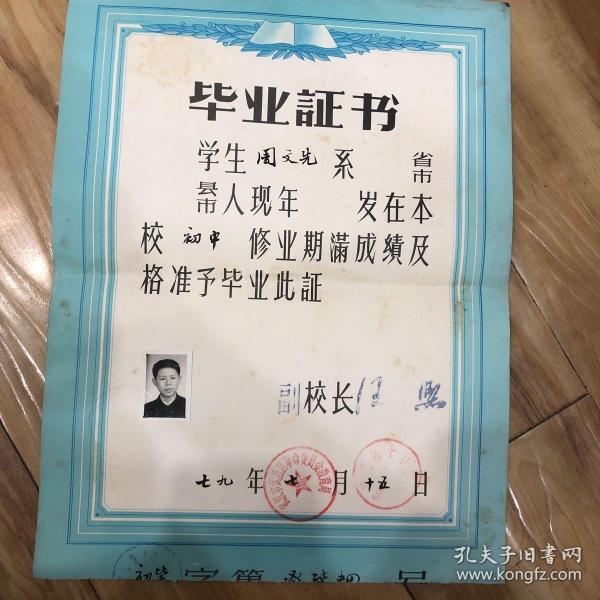 毕业証书
学生周文先系 省市
县市人现年 岁在本
校初中 修业期滿成績及
格准予毕业此証
副校长
七九年七月十五日
初毕字第 号
孔夫子旧书网
www.kongfz.com